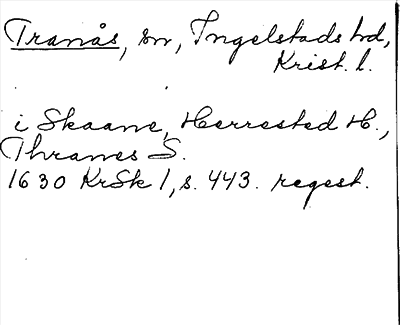 Tranås, sn, Ingelstads hd,
Krist. l.
i Skaane, Herrested H.,
Thranes S.
1630 KrSk 1, s. 443. regest.